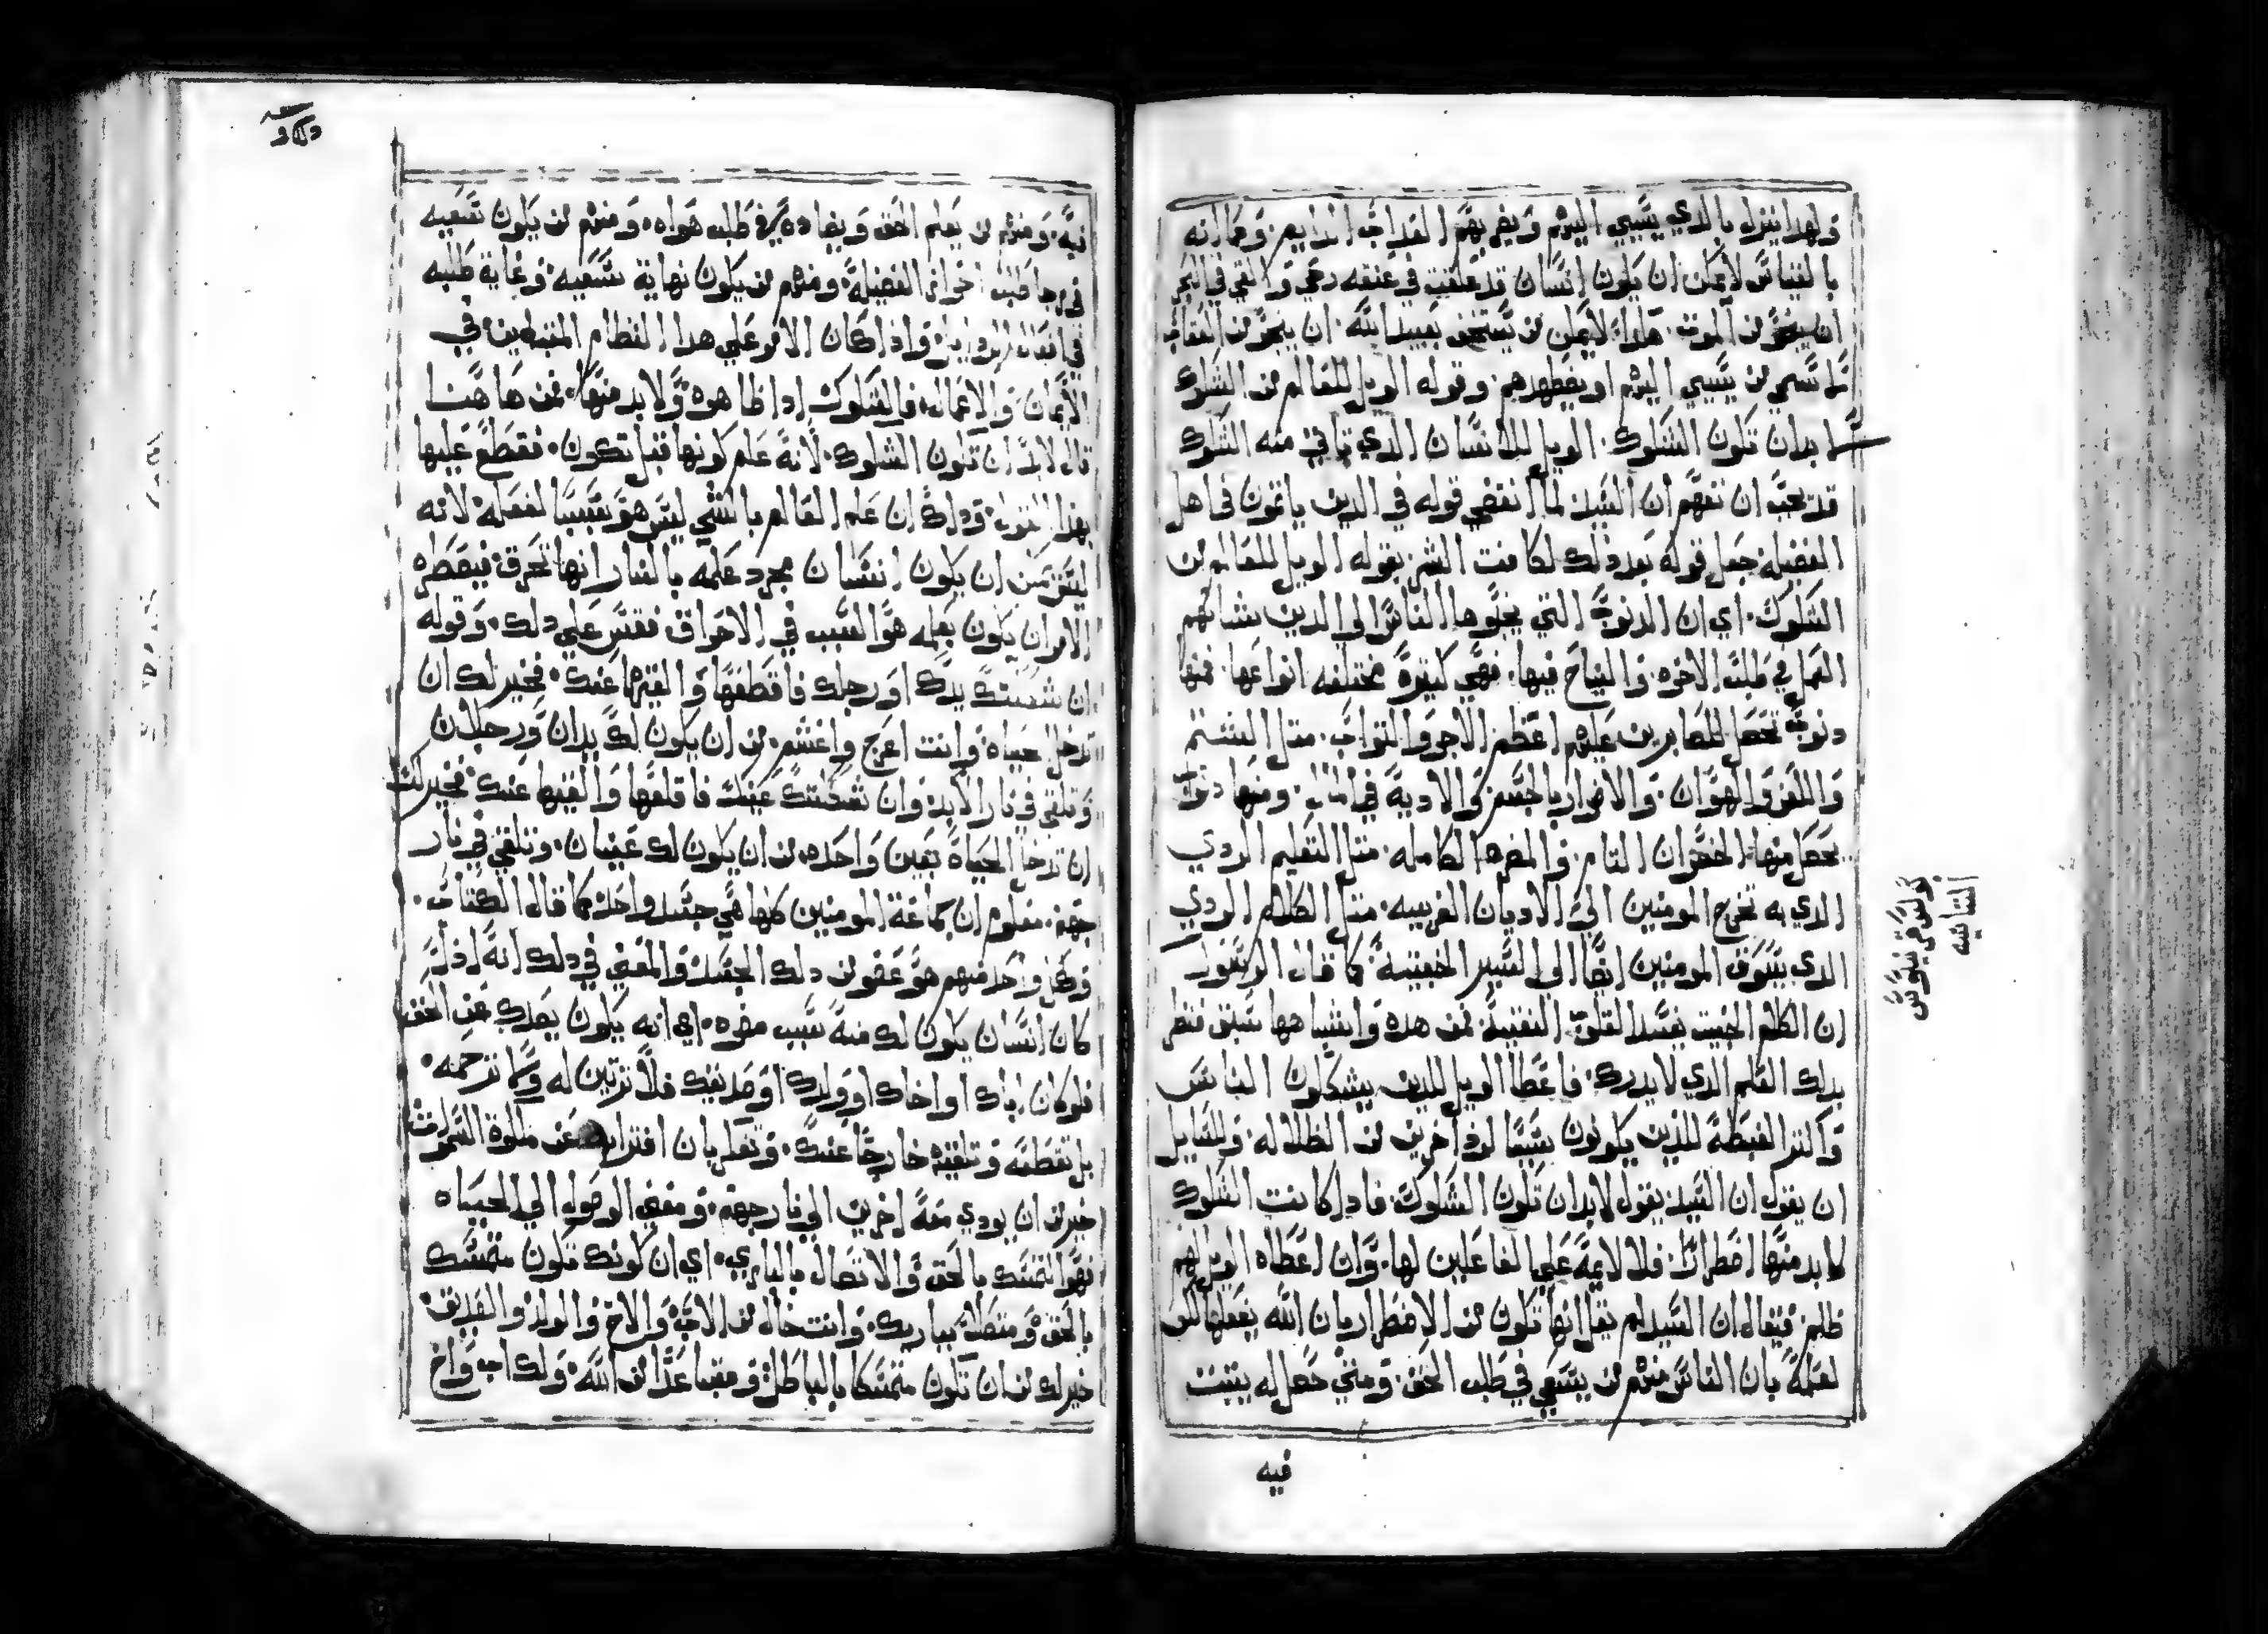 ولهدا ينزل بالدي يسيي اليهم ويضربهم العداب الدايم وكما انه
بالقياس لا يمكن ان يكون انسان قد علقت في عنقه رحي والقي في البحر
ان ينجو من الموت هكدا لا يمكن من يستخف بعبيد الله ان ينجو من العقاب
من يسيي اليهم او يضطهدهم وقوله الويل للعالم من الشكوك
لا بدان تكون الشكوك الويل للانسان الدي تاتي منه الشكوك
قد يجب ان نفهم ان السيد لما انقضي قوله في الدين ياتمون في اهل
الفضيله جعل قوله بعد ذلك لكافت الشر بقوله الويل للعالم من
الشكوك اي ان الدنوب التي يجلوها الناس الي الدين شانهم
العمل في طلب الاخره والنياح فيها فهي كتيرة مختلفه انواعها فمنها
دنوب تحصل للصابرين عليهم اعظم الاجر والتواب متل الشتم
واللعن والهوان والاضرار بالجسم والادية في المال ومنها دنوب
يحصل منها الخسران التام والمضره الكامله متل التعليم الردي
الدي به تخرج المومنين الي الاديان الغريبه متل الكلام الردي
الدي يسوق المومنين ايضا الي السير الخبيته كما قال الرسول
ان الكلام الخبيت يفسد القلوب النقية فمن هده واشباهها سبق فنظر
بدلك العلم الدي لا يدرك فاعطا الويل للدين يشككون الناس
واكتر الغبطة للذين يكونون سببا لرد اخرين من الظلاله وللسايل
ان يقول ان السيد يقول لابدان تكون الشكوك فاداكانت الشكوك
لابد منها اضطرارا فلا لايمة علي الفاعلين لها وان اعطاه الويل لهم
ظلم فيقال ان السيد لم يقل انها تكون من الاضطرار بان الله يفعلها لكن
لعلمه بان الناس منهم من يسعي في طلب الحق ومتي حصل له يتبت
فيه
كولوسا قرنتيوس
التانيه
فيه ومنهم من يعلم الحق ويضاده في طلب هواه ومنهم من يكون تسعيه
في طلب احراز الفضيلة ومنهم من يكون نهاية سعيه وغاية طلبه
في افعال الردايل واذا كان الامر علي هدا النظام المتباين في
الايمان والاعمال فالشكوك ادا ظاهره ولابد منها فمن هاهنا
قال لابد ان تكون الشكوك لانه علم كونها قبل تكون فقطع عليها
بهدا القول وداك ان علم العالم بالشي ليس هو سببا لفعله لانه
ليس يمكن ان يكون انسان مجرد علمه بالنار انها تحرق فيضطره
الامر ان يكون بعلمه هو السبب في الاحراق فقس علي دلك وقوله
ان شككتك يدك او رجلك فاقطعها والقيها عنك فخير لك ان
تدخل الحياه وانت اعرج واعشم من ان يكون لك يدان ورجلان
وتلقي في نار الابد وان شككتك عينك فاقلعها والقيها عنك فخير لك
ان تدخل الحياة بعين واحده من ان يكون لك عينان وتلقي في نار
جهنم معلوم ان جماعة المومنين كلها هي جسد واحد كما قال الكتاب
وكل واحد منهم هو عضو من دلك الجسد والمعني في دلك انه اذا
كان انسان يكون لك منه سبب مضره اي انه يكون يبعدك عن الحق
فلو كان اباك او اخاك او ولدك او صديقك فلا ترتين له ولا ترحمه
بل تقطعه وتلقيه خارجا عنك وتعلم بان افتراقه عن ملكوة السموات
خير من ان يودي معه اخرين الي نار جهنم ومعني الوصول الي الحياه
فهو التمسك بالحق والاتصال بالباري اي ان كونك تكون متمسك
بالحق ومتصلا بباريك وانت خال من الاب والاخ والولد والصديق
خير لك من ان تكون متمسكا بالباطل ومقيما عدا من الله ولك اب واخ